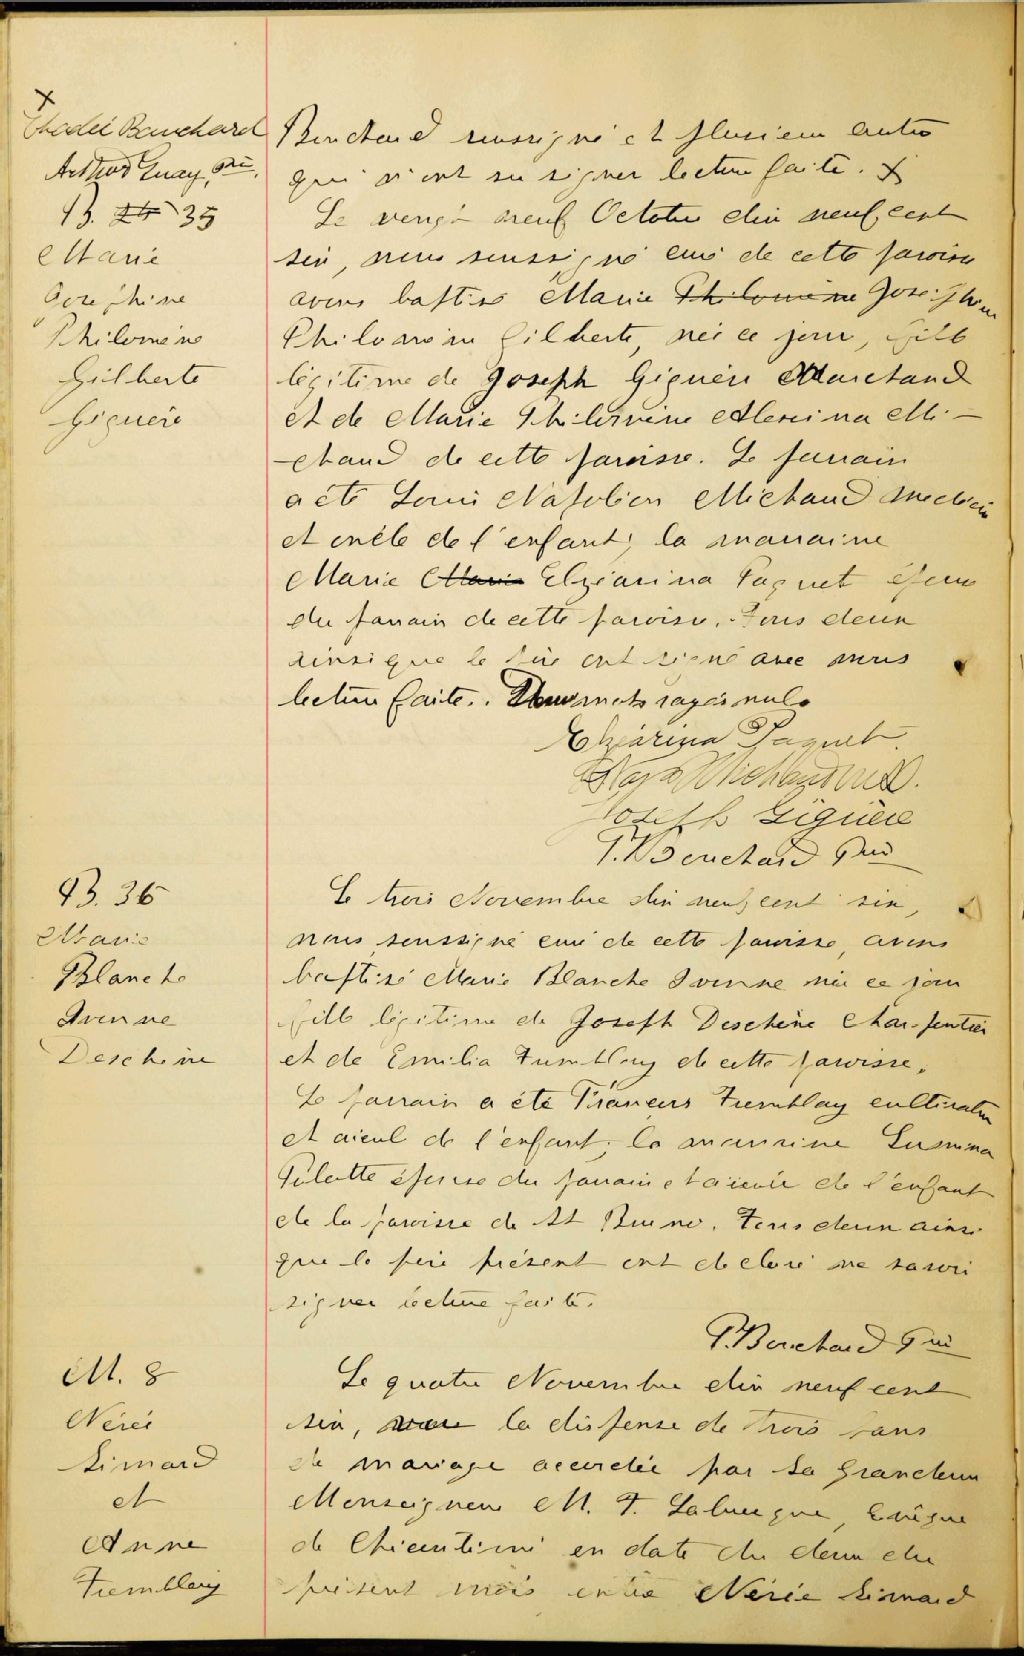 X
Thadée Bouchard
Arthur Guay, ptre.
B. 24 35
Marie
Josephine
Philomène
Gilberte
Giguère
Bouchard soussigné et plusieurs autres
qui n'ont su signer lecture faite. X
Le vingt neuf Octobre dix neuf cent
six, nous soussigné curé de cette paroisse
avons baptisé Marie Philomène Josephine
Philomène Gilberte, née ce jour, fille
légitime de Joseph Giguère Marchand
et de Marie Philomène Alexina Mi-
-chaud de cette paroisse. Le parrain
a été Louis Napoléon Michaud médecin
et oncle de l'enfant, la marraine
Marie Marie Elzéarina Paquet épouse
du parrain de cette paroisse. Tous deux
ainsi que le père ont signé avec nous
lecture faite. Deux mots rayés nuls
Elzéarina Paquet
Michaud M.D.
Joseph Giguère
T. Bouchard Ptre
B. 36
Marie
Blanche
Ivonne
Deschène
Le trois Novembre dix neuf cent six,
nous soussigné curé de cette paroisse, avons
baptisé Marie Blanche Ivonne née ce jour
fille légitime de Joseph Deschène Charpentier
et de Emilia Tremblay de cette paroisse.
Le parrain a été François Tremblay cultivateur
et aieul de l'enfant; la marraine
épouse du parrain et aieule de l'enfant
de la paroisse de St Bruno. Tous deux ainsi
que le père présent ont déclaré ne savoir
signer lecture faite.
T. Bouchard Ptre
M. 8
Nérée
Simard
et
Anna
Tremblay
Le quatre Novembre dix neuf cent
six, vu la dispense de trois bans
de mariage accordée par Sa Grandeur
Monseigneur M. T. Labrecque, Evêque
de Chicoutimi en date du deux du
présent mois entre Nérée Simard